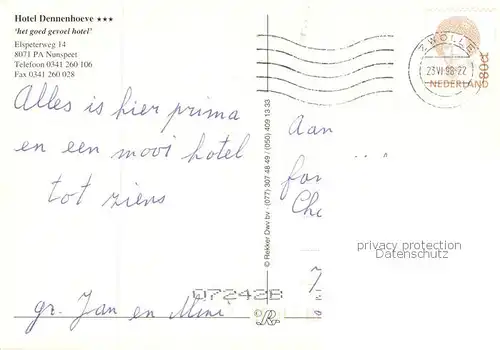 Hotel Dennenhoeve ★★★
'het goed gevoel hotel'
Elspeterweg 14
8071 PA Nunspeet
Telefoon 0341 260 106
Fax 0341 260 028
Alles is hier prima
en een mooi hotel
tot ziens
gr. Jan en Mini
© Rekker Dwv bv - (077) 307 48 49 / (050) 409 13 33
ZWOLLE
23 VI 98-22
NEDERLAND
80ct
Aan
fam
privacy protection
Datenschutz
072428